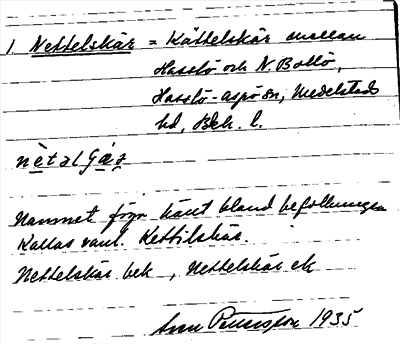 1. Nettelskär = Kättelskär mellan
Hasslö och N. Bollö,
Hasslö-Aspö sn, Medelstads
hd, Blek. l.
Namnet föga känt bland befolkningen
Kallas vanl. Kettilskär.
Nettelskär bek, Nettelskär ek
Pettersson 1935